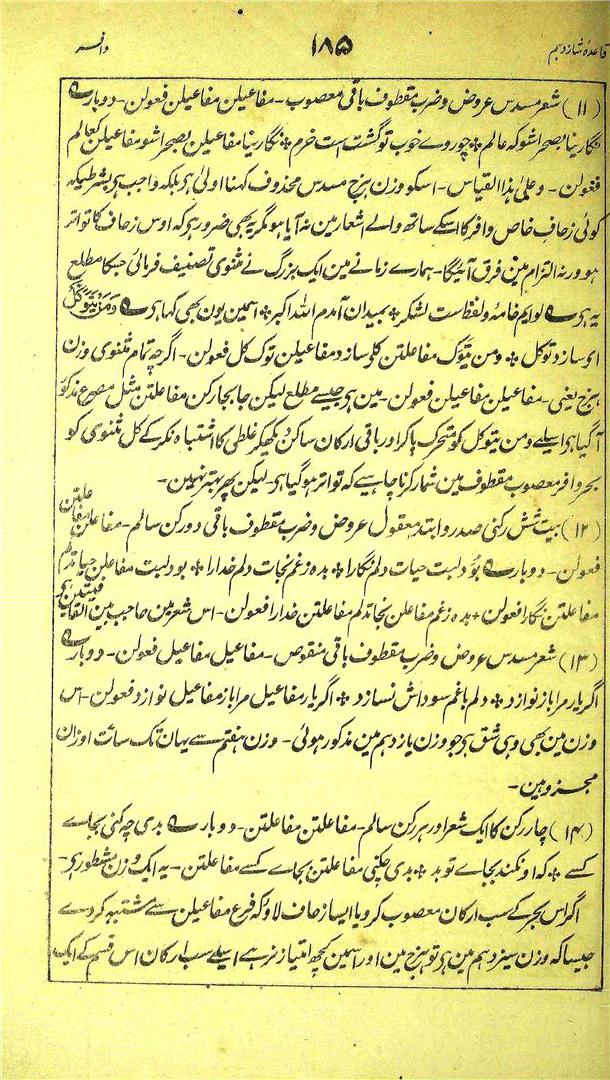 قاعدۂ شانزدہم ۱۸۵ وافر
(۱۱) شعر مسدس عروض و ضرب مقطوف باقی معصوب - مفاعیلن مفاعیلن فعولن - دوبار ے
نگارینا بصحرا شو کہ عالم ٭ چو روے خوب تو گشت است خرم ٭ نگارینا مفاعیلن بصحرا شو مفاعیلن کعالم
فعولن - وعلیٰ ہذا القیاس - اسکو وزن ہزج مسدس محذوف کہنا اولیٰ ہی بلکہ واجب ہی بشرطیکہ
کوئی زحاف خاص وافر کا اسکے ساتھ والے اشعار مین نہ آیا ہو مگر یہ بھی ضرور ہی کہ اوس زحاف کا تواتر
ہو ورنہ التزام مین فرق آئیگا - ہمارے زمانے مین ایک بزرگ نے مثنوی تصنیف فرمائی جسکا مطلع
یہ ہی ے لوایم خامہ و لفظ است لشکر ٭ بمیدان آمدم اللہ اکبر ٭ اسمین یون بھی کہا ہی ے وَمَن یَتَوَکَّل
ای سازد توکل ٭ ومن یتوک مفاعلتن کلی سازد مفاعیلن توک کل فعولن - اگرچہ تمام مثنوی وزن
ہزج یعنی - مفاعیلن مفاعیلن فعولن - مین ہی جیسے مطلع لیکن جابجا رکن مفاعلتن مثل مصرع مذکور
آگیا ہی اسلیے ومن یتوکل کو متحرک پاکر اور باقی ارکان ساکن دیکھکر غلطی کا اشتباہ نکر کے کل مثنوی کو
بحر وافر معصوب مقطوف مین شمار کرنا چاہیے کہ تواتر ہوگیا ہی لیکن پھر بہتر نہین -
(۱۲) بیت شش رکنی صدر و ابتدا معقول عروض و ضرب مقطوف باقی دو رکن سالم - مفاعلن مفاعلتن
فعولن - دوبار ے بوَد لبت حیات دلم نگارا ٭ بدہ زغم نجات دلم خدارا ٭ بود لبت مفاعلن حیاتدلم
مفاعلتن نگارا فعولن + بدہ زغم مفاعلن نجاتدلم مفاعلتن خدارا فعولن - اس شعر مین صاحب بین القافیتین ہی
(۱۳) شعر مسدس عروض و ضرب مقطوف باقی منقوص - مفاعیل مفاعیل فعولن - دوبار ے
اگر یار مرا باز نوازد ٭ دلم با غم سوداش نسازد ٭ اگر یار مفاعیل مرا باز مفاعیل نوازد فعولن - اس
وزن مین بھی وہی شق ہی جو وزن یازدہم مین مذکور ہوئی - وزن ہفتم سے یہان تک سات اوزان
مجزو ہین -
(۱۴) چار رکن کا ایک شعر اور ہر رکن سالم - مفاعلتن مفاعلتن - دوبار ے بدی چہ کنی بجاے
کسے ٭ کہ او نکند بجاے تو بد ٭ بدی چکنی مفاعلتن بجاے کسے مفاعلتن - یہ ایک وزن مشطور ہی -
اگر اس بحر کے سب ارکان معصوب کرو یا ایسا زحاف لاؤ کہ فرع مفاعیلن سے مشتبہ کر دے
جیسا کہ وزن سیزدہم مین ہی تو ہزج مین اور اسمین کچھ امتیاز نرہے اسلیے سب ارکان اس قسم کے ایک